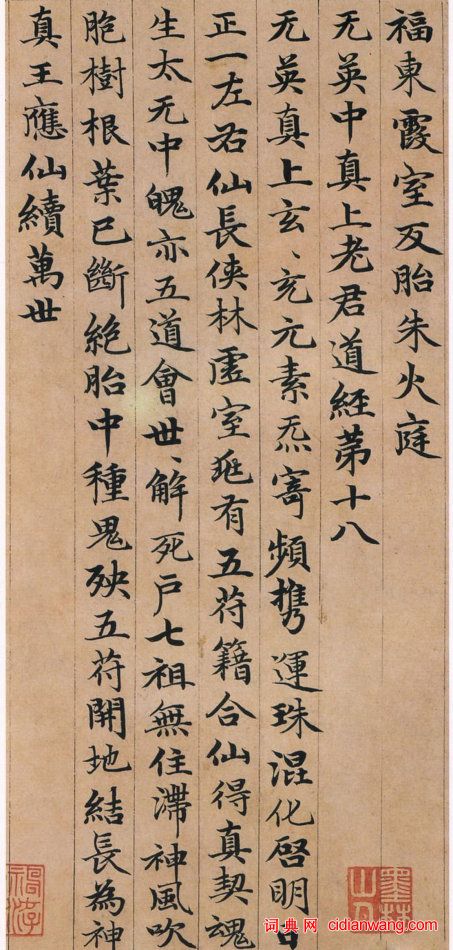 福東霞室反胎朱火庭
无英中真上老君道經第十八
无英真上玄、充元素炁寄頻携運珠混化啓明
正一左右仙長俠林虛室延有五苻籍合仙得真契魂
生太无中魄亦五道會世、解死戶七祖無住滯神風吹
胞樹根葉已斷絕胎中種鬼殃五苻開地結長為神
真王應仙續萬世
墨林
词典网 cidianwang.com